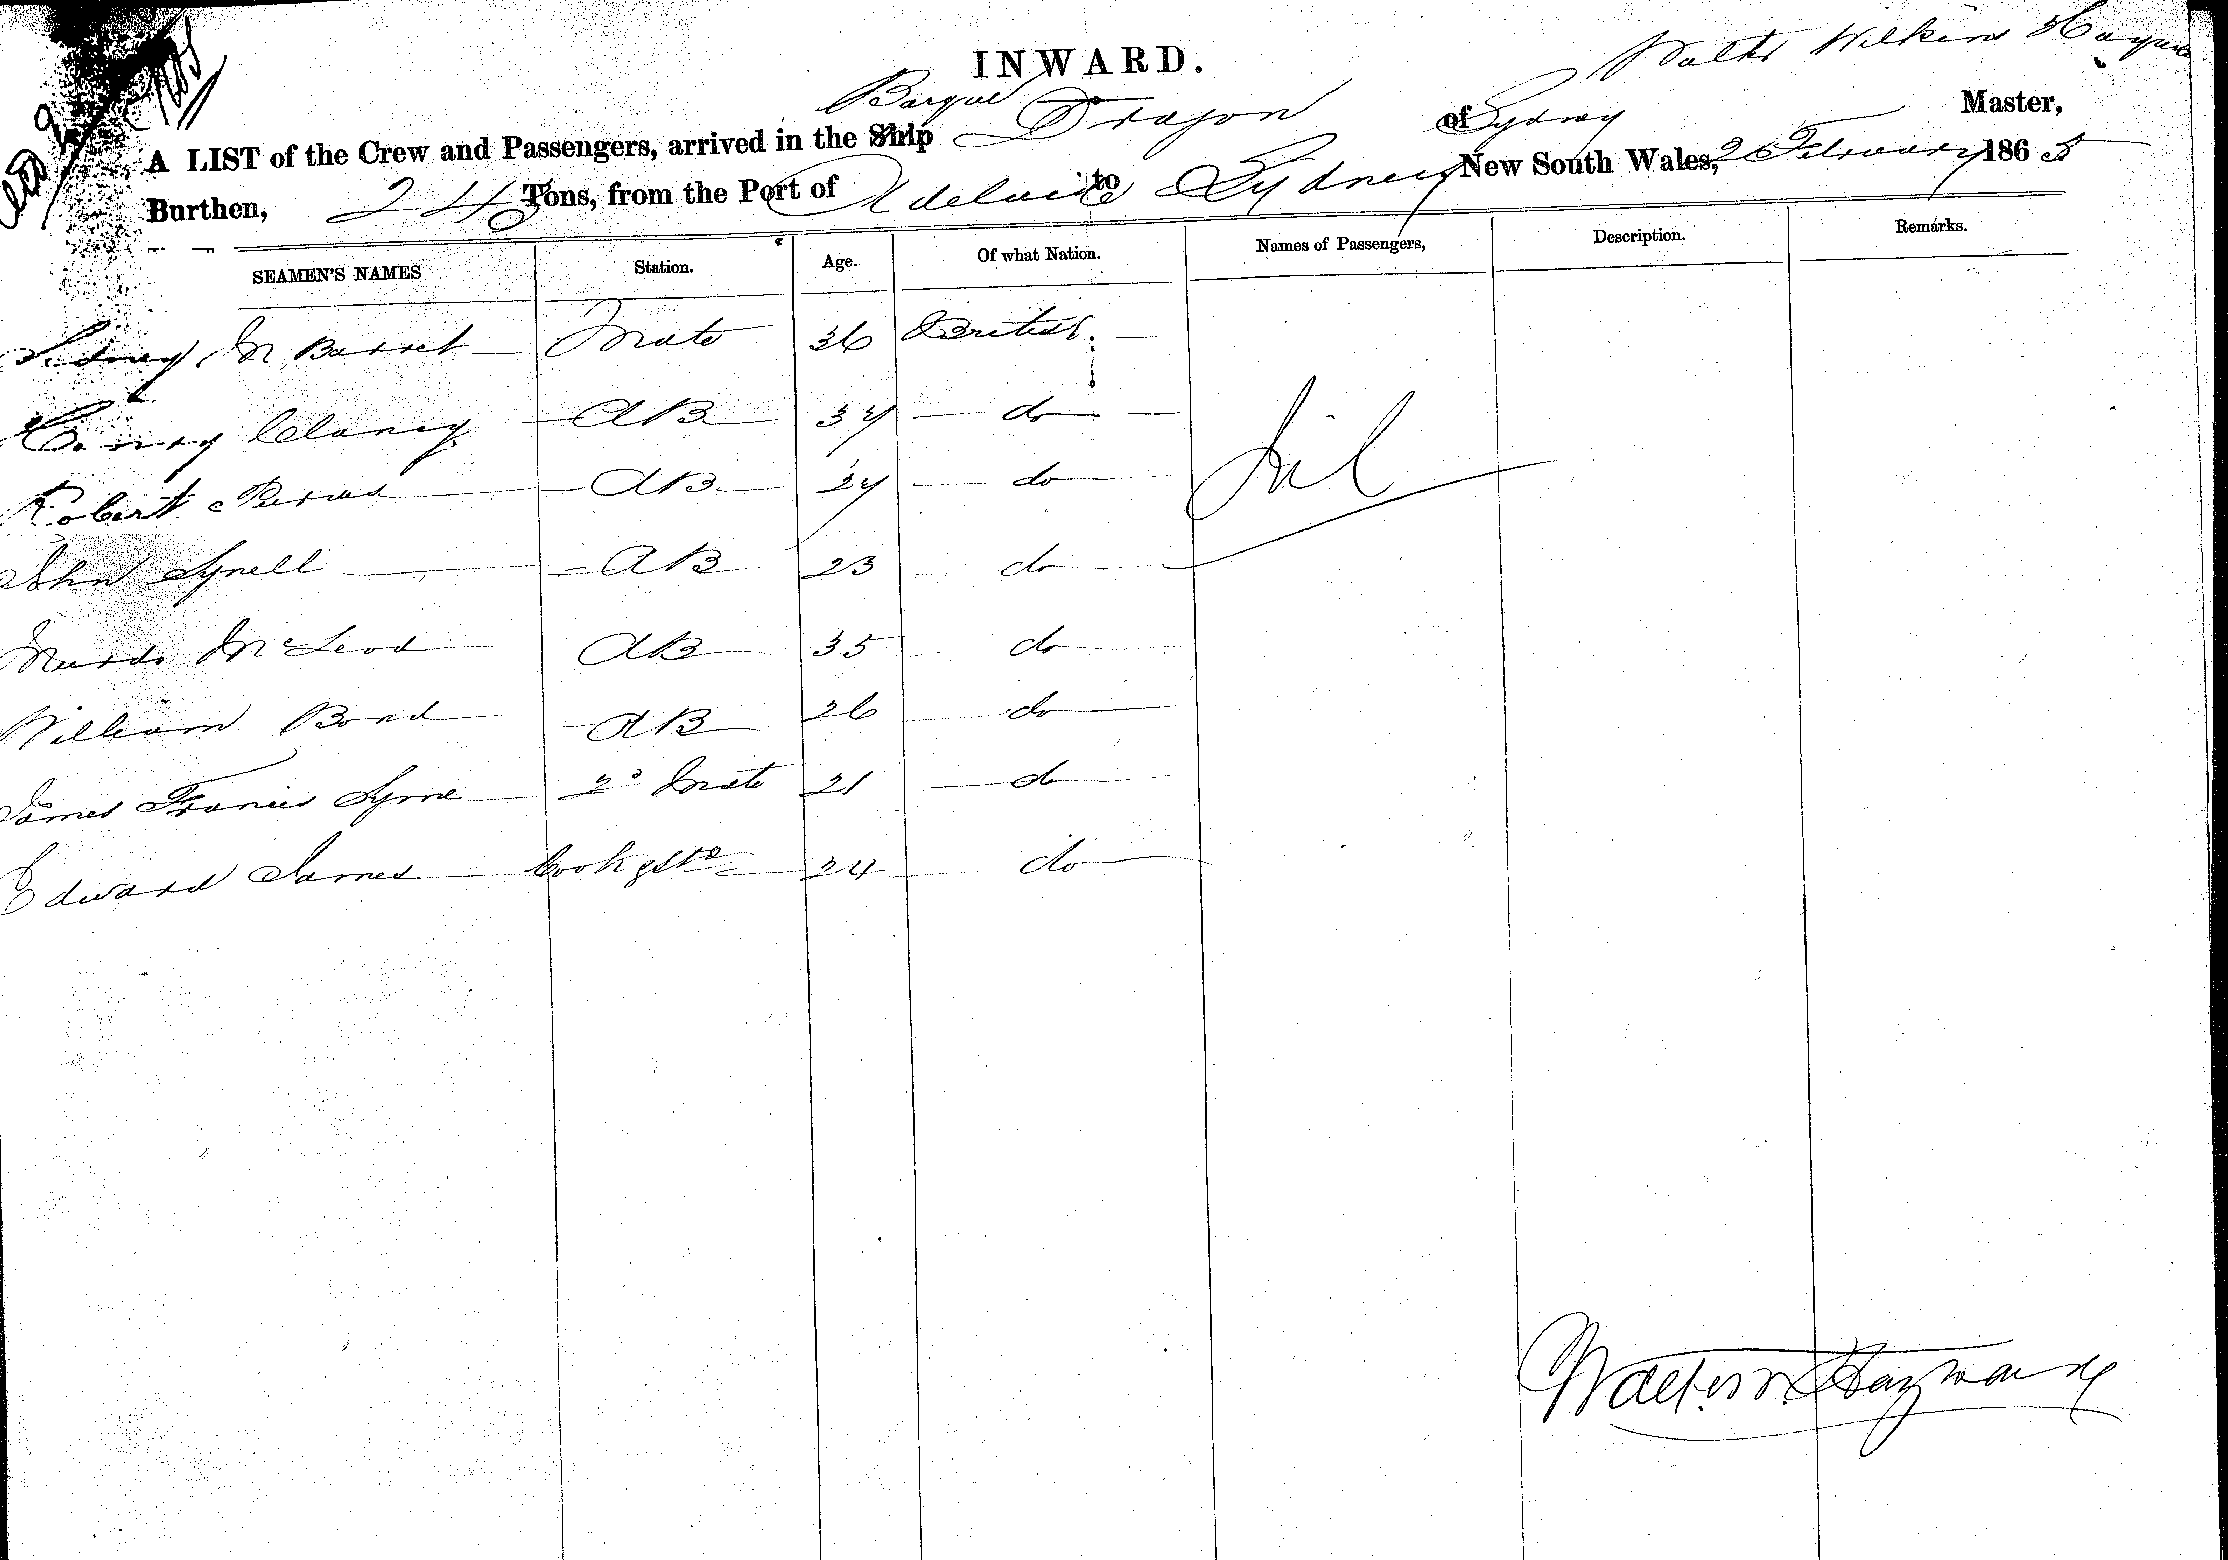 INWARD.
Walter Wilkins
Barque
A LIST of the Crew and Passengers, arrived in the Ship Dragon of Sydney Master,
Burthen, Tons, from the Port of Adelaide to Sydney New South Wales, 2 February 186
SEAMEN'S NAMES Station. Age. Of what Nation. Names of Passengers, Description. Remarks.
Sidney M Barret Mate 36 British
Clancy AB do
Robert AB do
Nil
John AB 23 do
Murdo McLeod AB 35 do
William Bond AB 26 do
James Francis Lyne 2d Mate 21 do
Edward James Cook & Std 24 do
Walter W Hayward